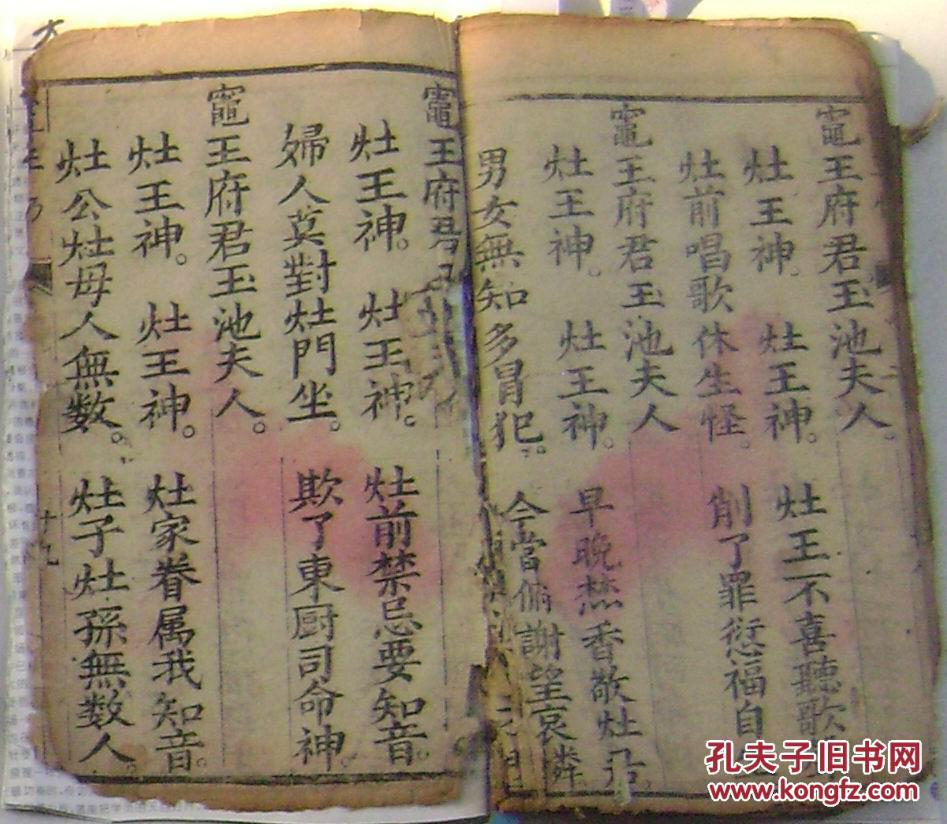 竈王府君玉池夫人。
灶王神。灶王神。灶王不喜聽歌
灶前唱歌休生怪。削了罪愆福自
竈王府君玉池夫人
灶王神。灶王神。早晚焚香敬灶君。
男女無知多冒犯。今當俯謝望哀憐
竈王府君
灶王神。灶王神。灶前禁忌要知音。
婦人莫對灶門坐。欺了東厨司命神。
竈王府君玉池夫人。
灶王神。灶王神。灶家眷属我知音。
灶公灶母人無数。灶子灶孫無数人。
十九
孔夫子旧书网
www.kongfz.com